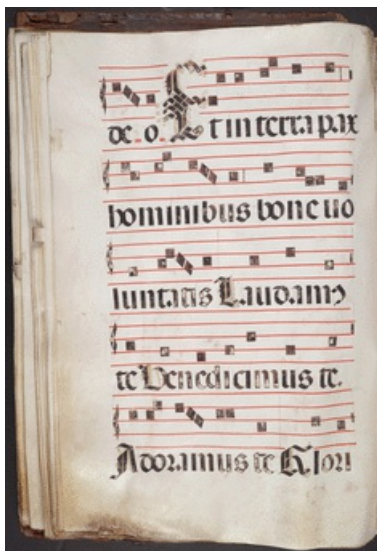 de. o. Et in terra pax
hominibus bone uo
luntatis Laudam⁹
te Benedicimus te.
Adoramus te Glori